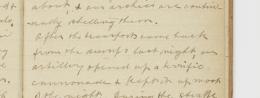 about, & our archies are contin
ually shelling them.
After the transports came back
from the dump last night, our
artillery opened up a terrific
cannonade & kept it up most
of the night. During the strafe